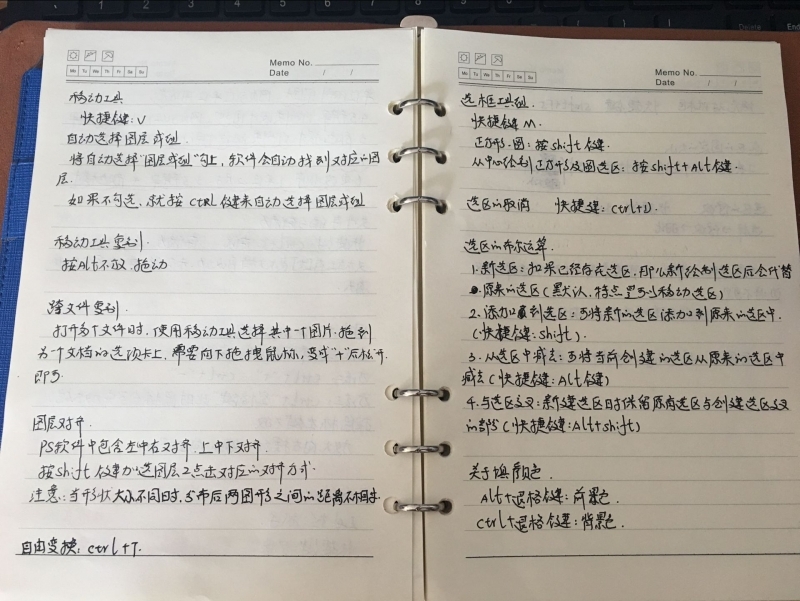 Memo No.
Mo Tu We Th Fr Sa Su
Date / /
移动工具
快捷键:V
自动选择图层或组.
将自动选择"图层或组"勾上,软件会自动找到对应的图
层.
如果不勾选,就按ctrl键来自动选择图层或组
移动工具复制.
按Alt不放,拖动
跨文件复制.
打开多个文件时,使用移动工具选择其中一个图片,拖到
另一个文档的选项卡上,需要向下拖拽鼠标,变成"+"后松开
即可
图层对齐.
PS软件中包含左中右对齐,上中下对齐.
按shift键加选图层2点击对应的对齐方式.
注意:当形状大小不同时,分布后两图形之间的距离不相等
自由变换:ctrl+T.
Memo No.
Mo Tu We Th Fr Sa Su
Date / /
选框工具组.
快捷键M.
正方形.圆:按shift键.
从中心绘制正方形及圆选区:按shift+Alt键.
选区的取消 快捷键:ctrl+D.
选区的布尔运算.
1.新选区:如果已经存在选区,那么新绘制选区后会代替
原来的选区(默认,特点是可以移动选区)
2.添加到选区:可将新的选区添加到原来的选区中.
(快捷键:shift).
3.从选区中减去:可将当前创建的选区从原来的选区中
减去(快捷键:Alt键)
4.与选区交叉:新建选区时保留原有选区与创建选区交叉
的部分(快捷键:Alt+shift)
关于填颜色.
Alt+退格键:前景色.
ctrl+退格键:背景色.
Delete
End